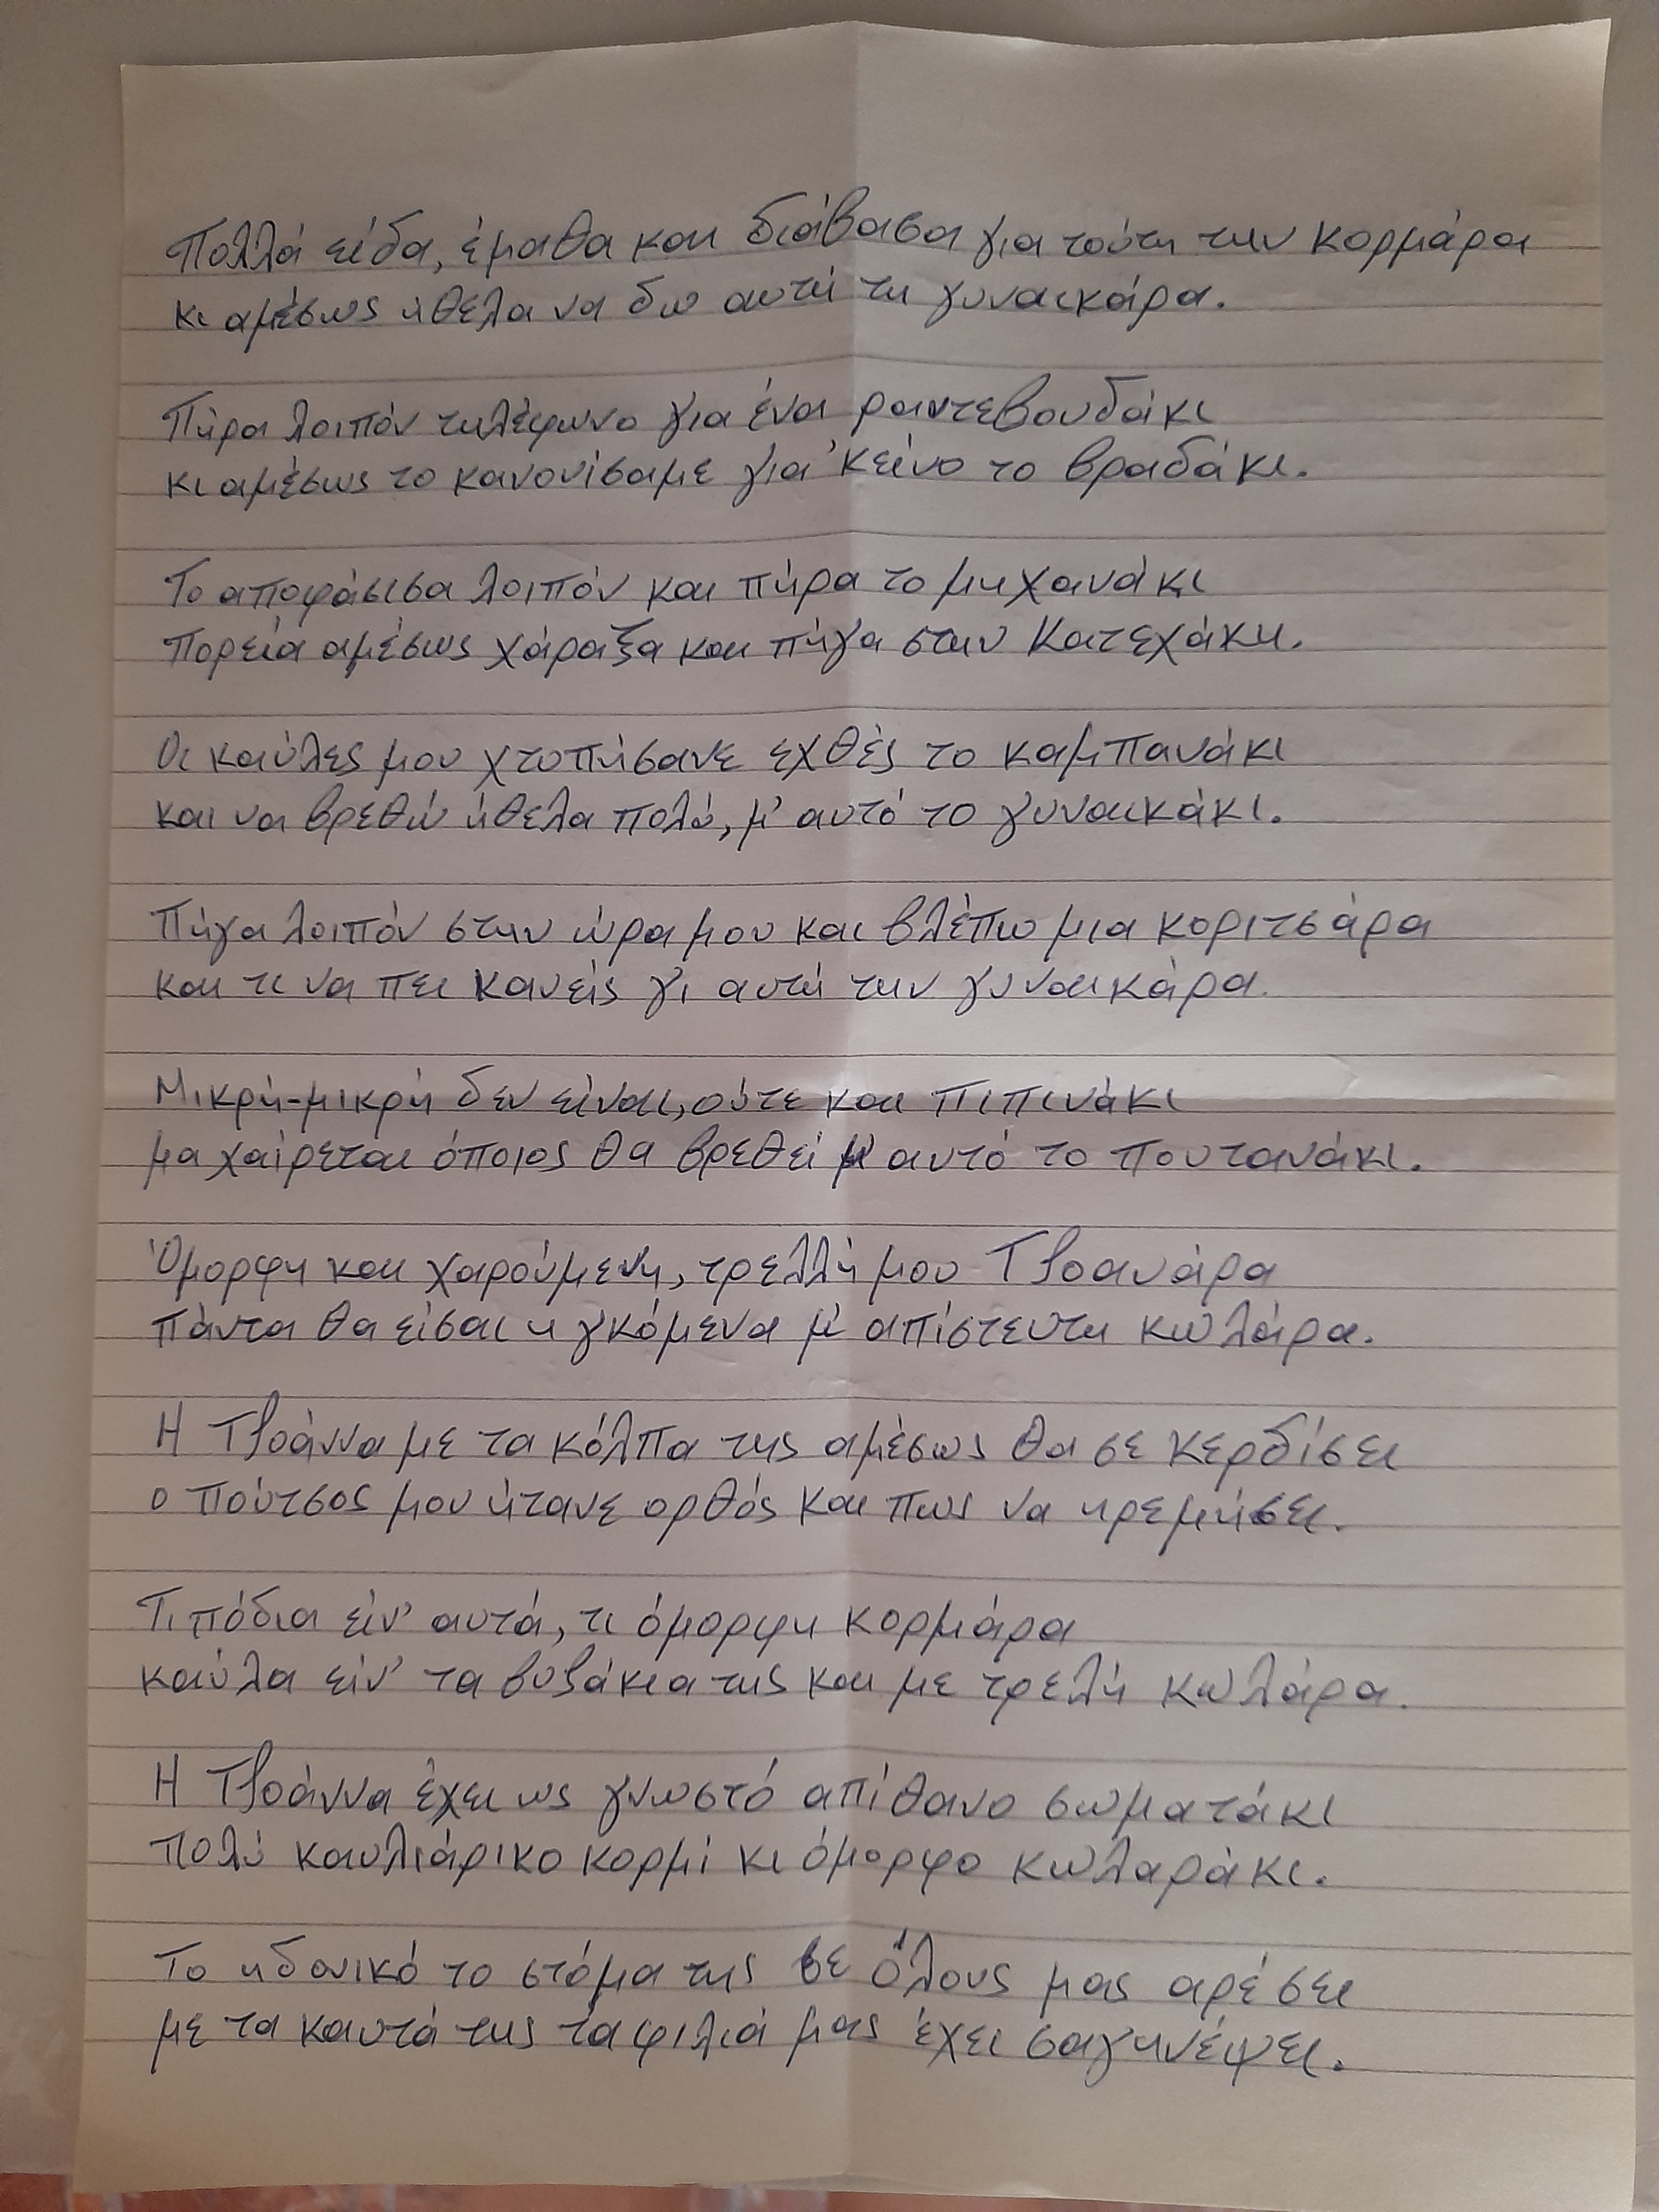 Πολλά είδα, έμαθα και διάβασα για τούτη την κορμάρα
κι αμέσως ήθελα να δω αυτή τη γυναικάρα.
Πήρα λοιπόν τηλέφωνο για ένα ραντεβουδάκι
κι αμέσως το κανονίσαμε για 'κείνο το βραδάκι.
Το αποφάσισα λοιπόν και πήρα το μηχανάκι
Πορεία αμέσως χάραξα και πήγα στην Κατεχάκη.
Οι καύλες μου χτυπήσανε εχθές το καμπανάκι
και να βρεθώ ήθελα πολύ, μ' αυτό το γυναικάκι.
Πήγα λοιπόν στην ώρα μου και βλέπω μια κοριτσάρα
και τι να πει κανείς γι αυτή την γυναικάρα.
Μικρή-μικρή δεν είναι, ούτε και πιπινάκι
μα χαίρεται όποιος θα βρεθεί μ' αυτό το πουτανάκι.
Όμορφη και χαρούμενη, τρελλή μου Τζοανάρα
πάντα θα είσαι η γκόμενα μ' απίστευτη κωλάρα.
Η Τζοάννα με τα κόλπα της αμέσως θα σε κερδίσει
ο πούτσος μου ήτανε ορθός και πως να ηρεμήσει.
Τι πόδια είν' αυτά, τι όμορφη κορμάρα
καύλα είν' τα βυζάκια της και με τρελή κωλάρα.
Η Τζοάννα έχει ως γνωστό απίθανο σωματάκι
πολύ καυλιάρικο κορμί κι όμορφο κωλαράκι.
Το ηδονικό το στόμα της σε όλους μας αρέσει
με τα καυτά της τα φιλιά μας έχει σαγηνέψει.